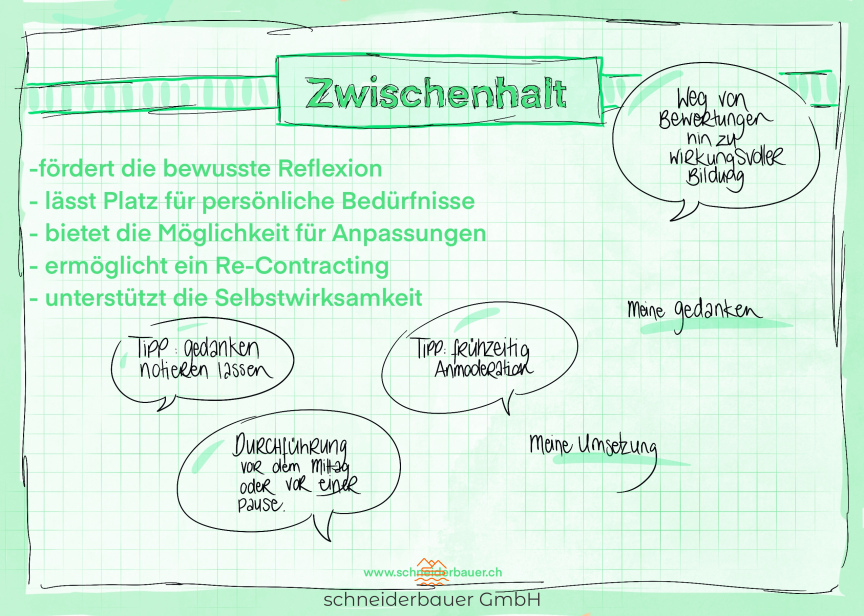 Zwischenhalt
Weg von
Bewertungen
hin zu
wirkungsvoller
Bildung
-fördert die bewusste Reflexion
- lässt Platz für persönliche Bedürfnisse
- bietet die Möglichkeit für Anpassungen
- ermöglicht ein Re-Contracting
- unterstützt die Selbstwirksamkeit
Meine gedanken
Tipp: gedanken
notieren lassen
Tipp: frühzeitig
Anmoderation
Durchführung
vor dem Mittag
oder vor einer
pause.
Meine Umsetzung
www.schneiderbauer.ch
schneiderbauer GmbH